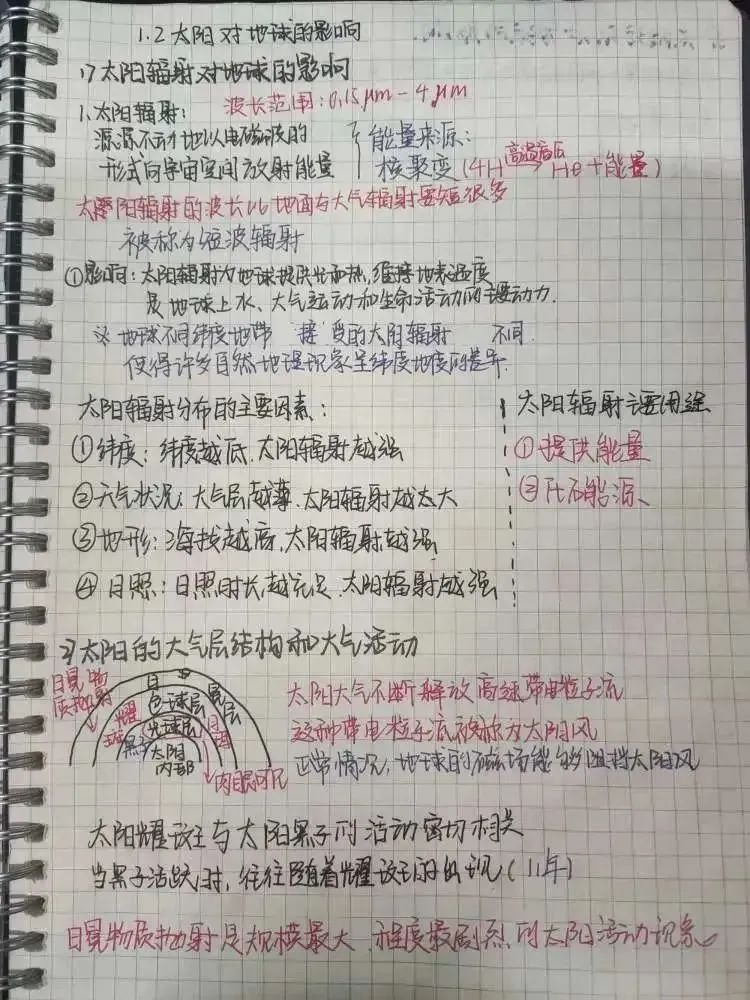 1.2 太阳对地球的影响
1) 太阳辐射对地球的影响
1. 太阳辐射: 波长范围:0.15μm-4μm
源源不动地以电磁波的
形式向宇宙空间放射能量
能量来源:
核聚变(4H 高温高压→ He+能量)
太阳辐射的波长比地面与大气辐射要短很多
被称为短波辐射
①影响:太阳辐射为地球提供光和热,维持地表温度
是地球上水、大气运动和生命活动的主要动力.
※地球不同纬度地带 接受的太阳辐射 不同.
使得许多自然地理现象呈纬度地度的差异.
太阳辐射分布的主要因素:
①纬度:纬度越低.太阳辐射越强
②天气状况:大气层越薄.太阳辐射越太大
③地形:海拔越高,太阳辐射越强
④日照:日照时长越充足.太阳辐射越强
太阳辐射主要用途
①提供能量
②化石能源
2) 太阳的大气层结构和大气活动
日冕物
质抛射
日冕层
色球层
光球层
太阳
内部
耀斑
黑子
日珥
肉眼可见
太阳大气不断释放高速带电粒子流
这种带电粒子流被称为太阳风
正常情况,地球的磁场能够阻挡太阳风
太阳耀斑与太阳黑子的活动密切相关
当黑子活跃时,往往随着耀斑的出现(11年)
日冕物质抛射是规模最大.程度最剧烈的太阳活动现象